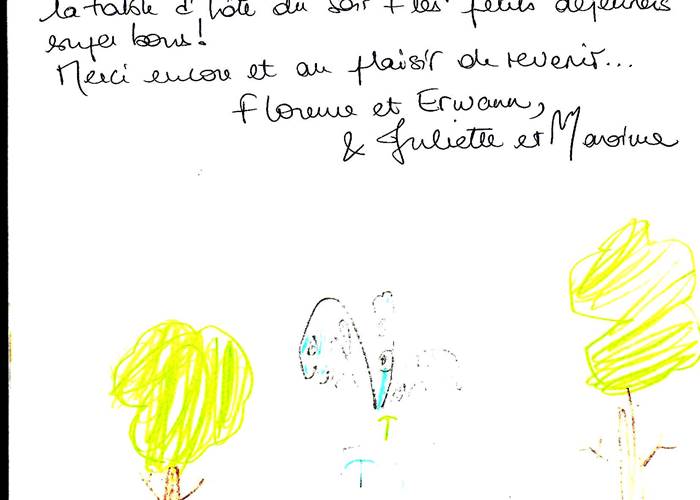 la table d'hôte du soir + les petits déjeuners
super bons!
Merci encore et au plaisir de revenir...
Florence et Erwann,
& Juliette et Maxime